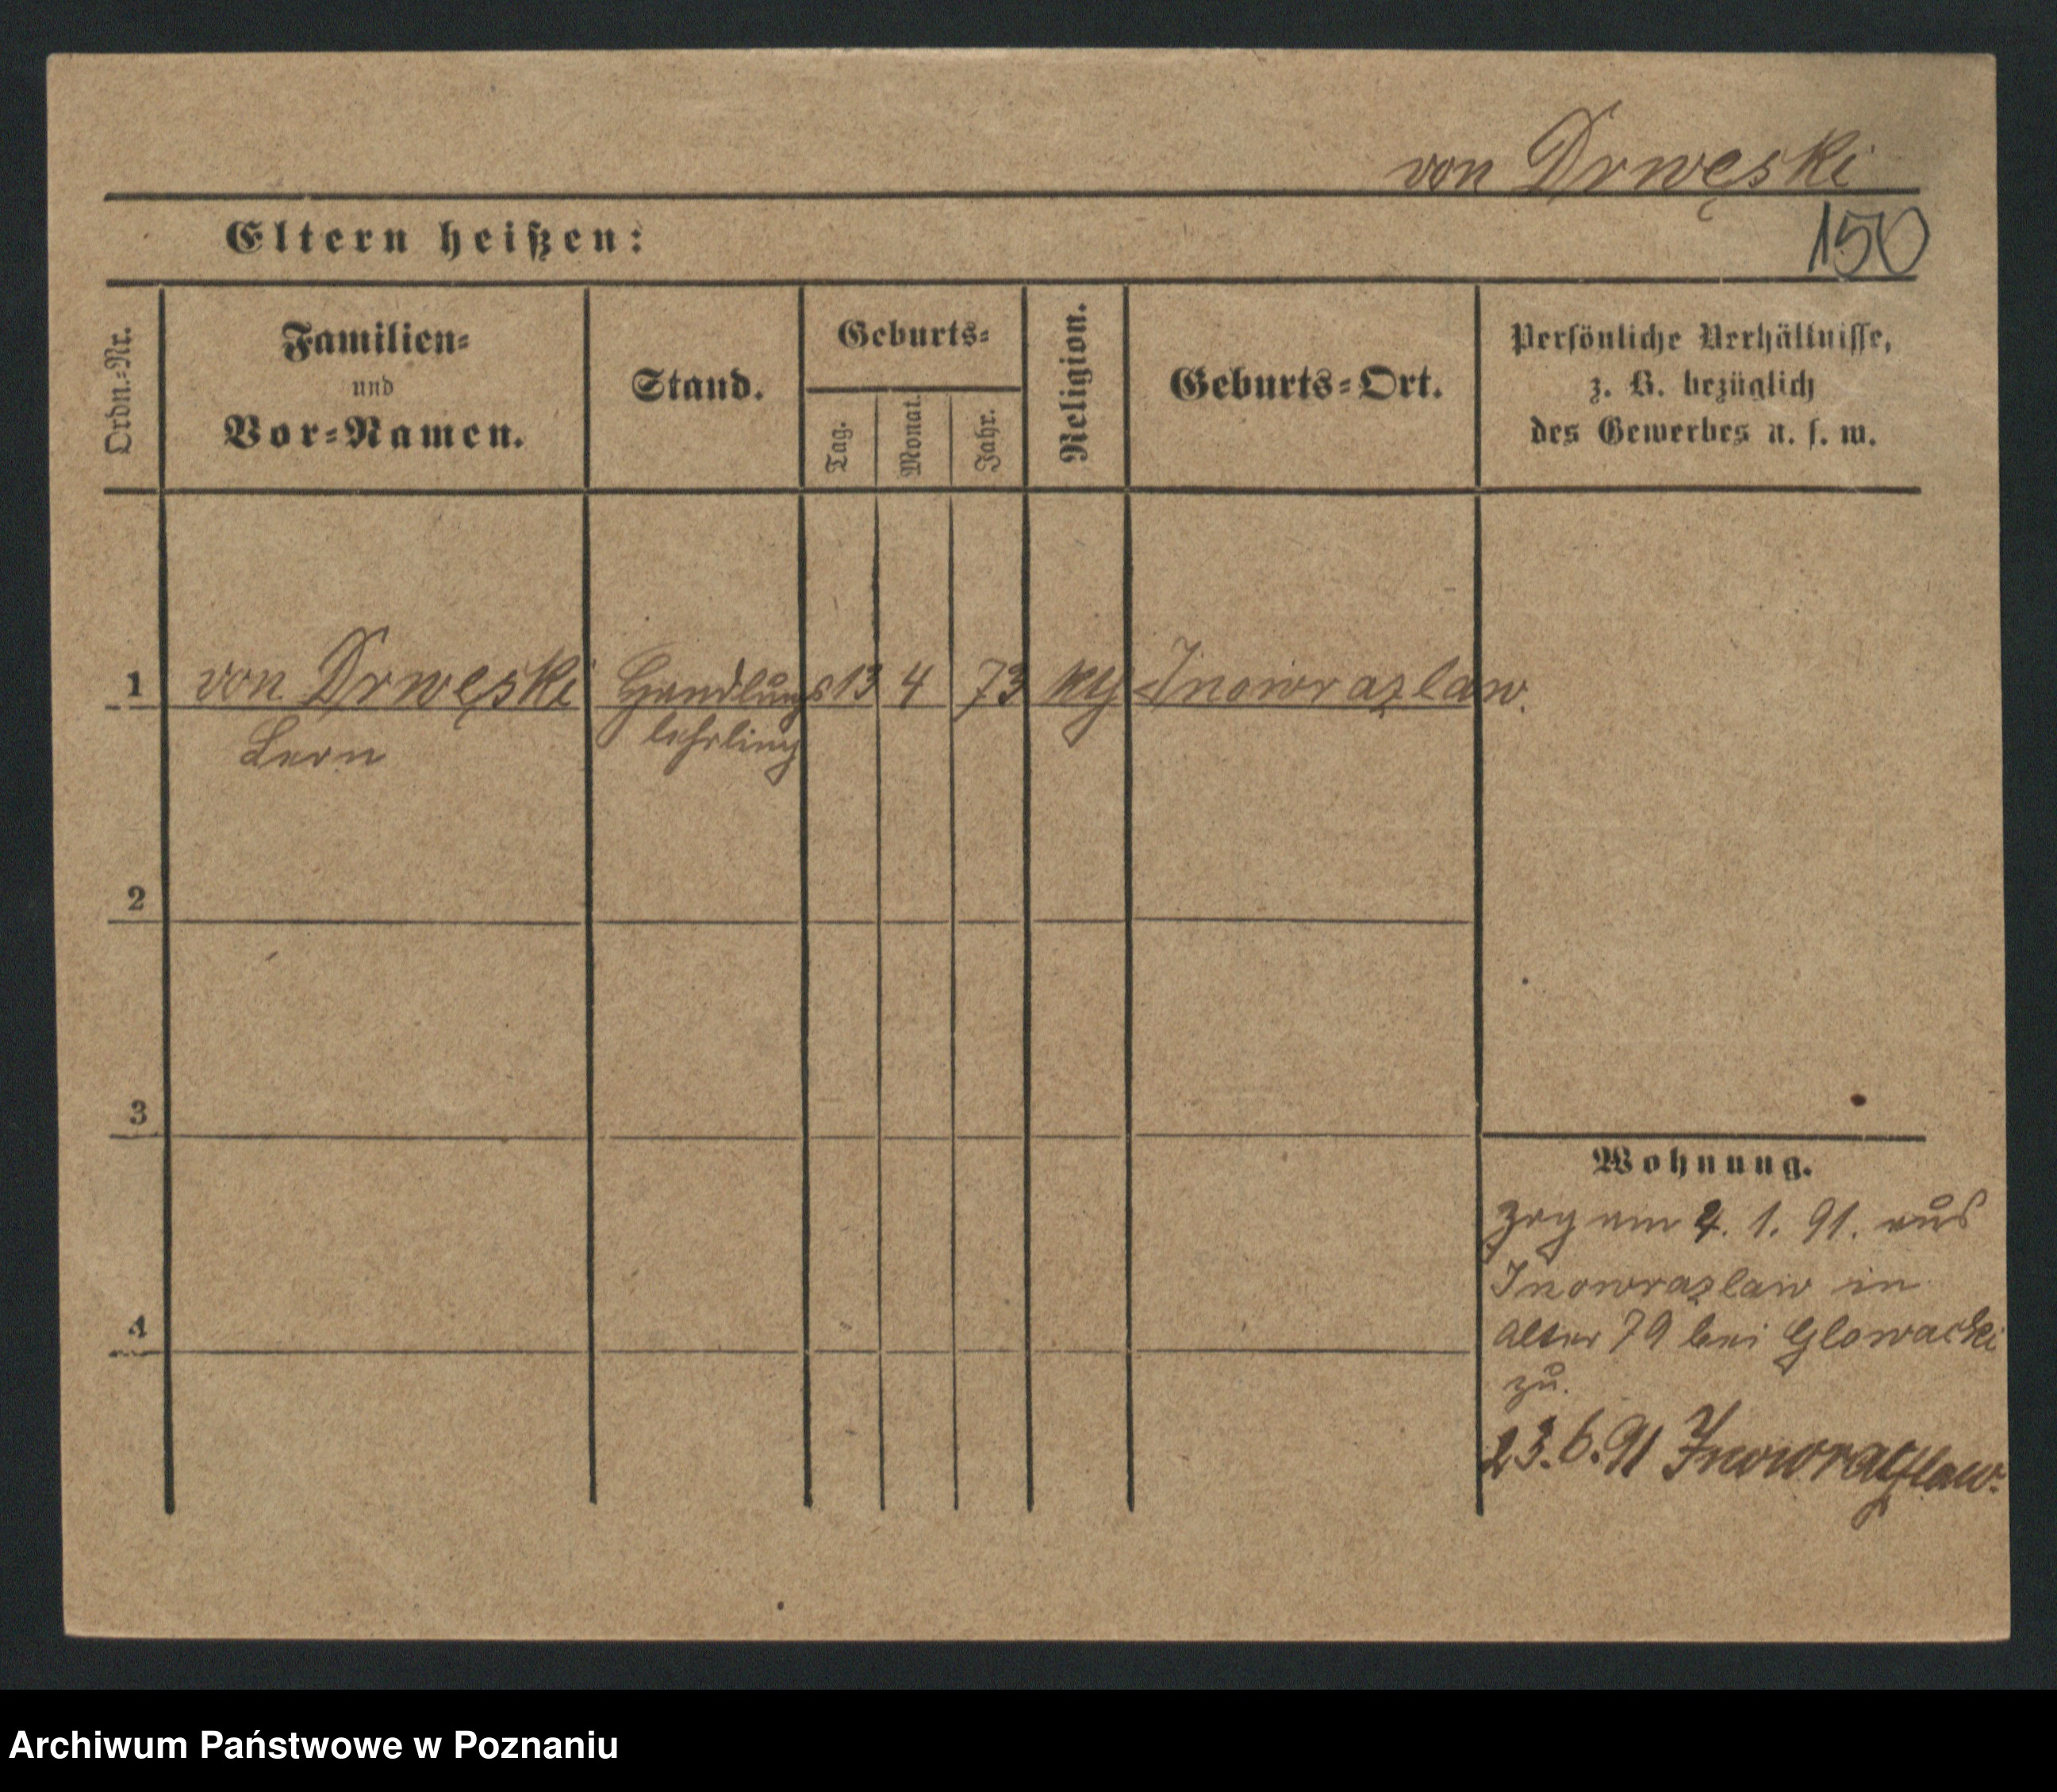 von Drwęski
150
Eltern heißen:
Ordn.=Nr.
Familien=
und
Vor=Namen.
Stand.
Geburts=
Tag.
Monat.
Jahr.
Religion.
Geburts=Ort.
Persönliche Verhältnisse,
z. B. bezüglich
des Gewerbes u. s. w.
1 von Drwęski Handlungs 13 4 73 Inowrazlaw.
Leon lehrling
2
3
4
Wohnung.
Zog am 4. 1. 91. aus
Inowrazlaw in
Alter 79 bei Glowacki
zu.
23.6.91 Inowrazlaw.
Archiwum Państwowe w Poznaniu